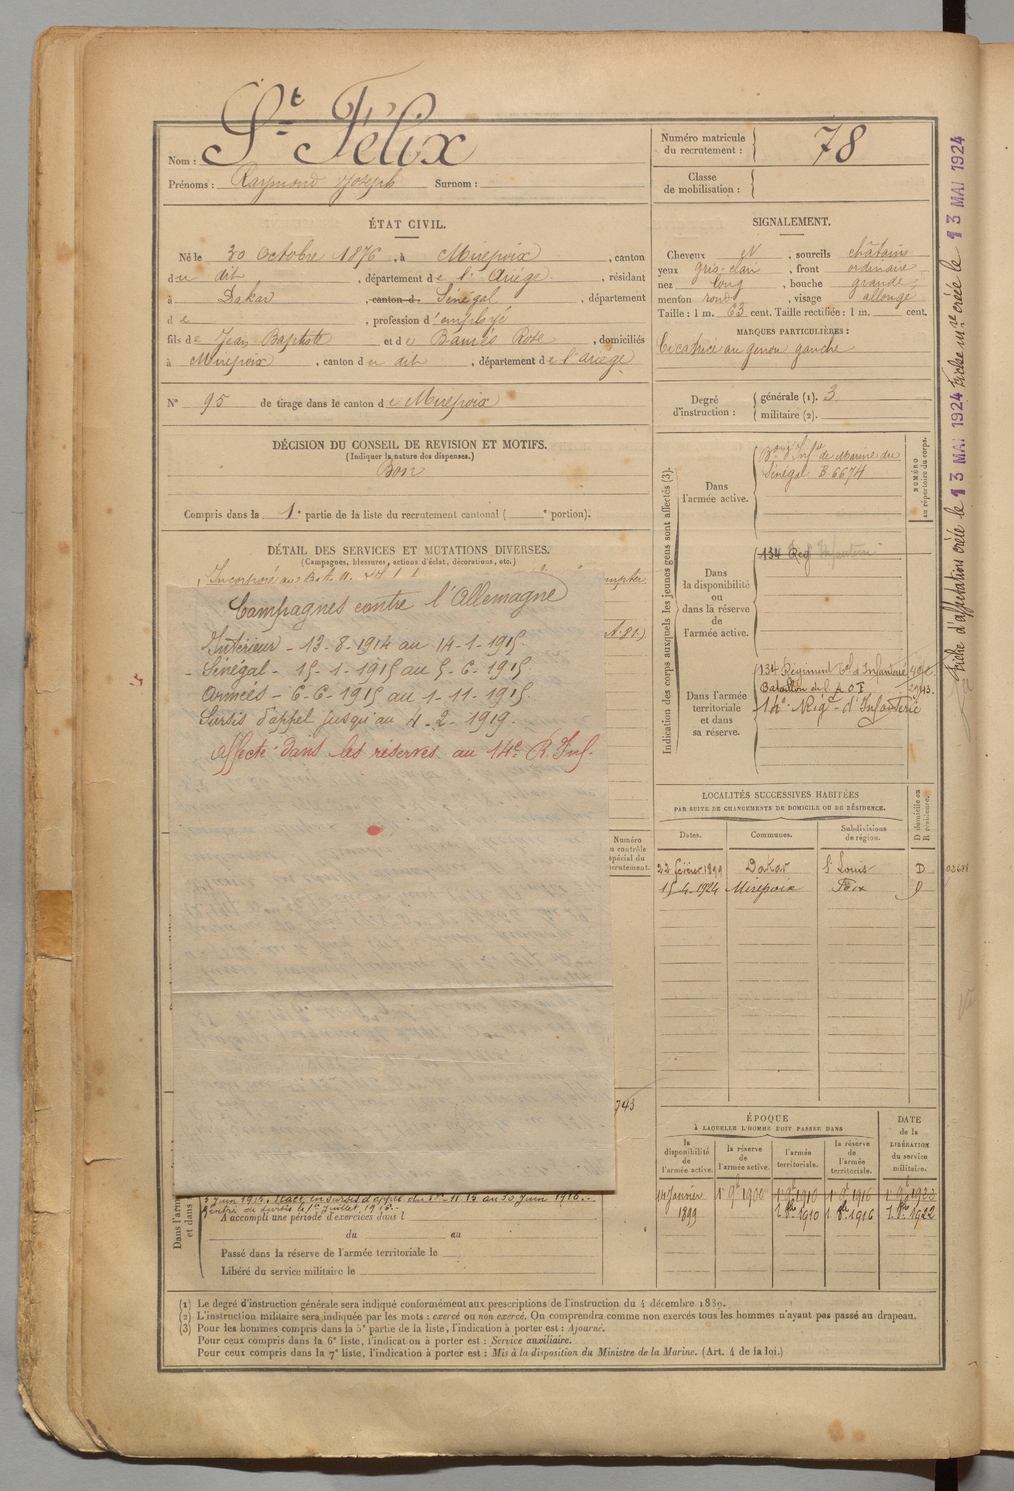 Nom : St Félix
Prénoms : Raymond Joseph Surnom :
Numéro matricule du recrutement : 78
Classe de mobilisation :
ÉTAT CIVIL.
Né le 30 Octobre 1876, à Mirepoix, canton
du dit, département de l'Ariège, résidant
à Dakar, canton d. Sénégal, département
d e, profession d'employé
fils de Jean Baptiste et de Rose, domiciliés
à Mirepoix, canton du dit, département de l'ariège
N° 95 de tirage dans le canton de Mirepoix
DÉCISION DU CONSEIL DE REVISION ET MOTIFS.
(Indiquer la nature des dispenses.)
Bon
Compris dans la 1e partie de la liste du recrutement cantonal ( e portion).
DÉTAIL DES SERVICES ET MUTATIONS DIVERSES.
(Campagnes, blessures, actions d'éclat, décorations, etc.)
Incorporé au
Campagnes contre l'Allemagne
Intérieur - 13-8-1914 au 14-1-1915
- Sénégal - 15-1-1915 au 5-6-1915
Armées - 6-6-1915 au 1-11-1915
Sursis d'appel jusqu'au 4-2-1919.
Affecté dans les réserves au 14e R. Inf.
Numéro
u contrôle
spécial du
recrutement.
743
Placé en sursis d'appel du 1er-11-15 au 30 Juin 1916.
A accompli une période d'exercices dans l
du au
Passé dans la réserve de l'armée territoriale le
Libéré du service militaire le
SIGNALEMENT.
Cheveux , sourcils châtains
yeux gris-clair, front ordinaire
nez long, bouche grande,
menton rond, visage allongé
Taille : 1 m. 63 cent. Taille rectifiée : 1 m. cent.
MARQUES PARTICULIÈRES :
Cicatrice au genou gauche
Degré d'instruction : générale (1). 3
militaire (2).
Indication des corps auxquels les jeunes gens sont affectés (3).
NUMÉRO au répertoire du corps.
Dans l'armée active.
d'Infie de Marine du
Sénégal B 6674
Dans la disponibilité ou dans la réserve de l'armée active.
134 Reg Infanterie
Dans l'armée territoriale et dans sa réserve.
134 Régiment d'Infanterie
Bataillon de l'A O F
14e Régt d'Infanterie
LOCALITÉS SUCCESSIVES HABITÉES
PAR SUITE DE CHANGEMENTS DE DOMICILE OU DE RÉSIDENCE.
Dates. Communes. Subdivisions de région. D domicile ou R résidence.
22 février 1899 Dakar St Louis D
15-4-1924 Mirepoix Foix D
ÉPOQUE
À LAQUELLE L'HOMME DOIT PASSER DANS
la disponibilité de l'armée active. la réserve de l'armée active. l'armée territoriale. la réserve de l'armée territoriale.
DATE de la LIBÉRATION du service militaire.
14 Janvier 1899 1er 9bre 1900 1er 9bre 1910 1er 9bre 1916
1910 1916 1922
Fiche d'affectation créée le 13 MAI 1924 Fiche mre créée le 13 MAI 1924
(1) Le degré d'instruction générale sera indiqué conformément aux prescriptions de l'instruction du 4 décembre 1889.
(2) L'instruction militaire sera indiquée par les mots : exercé ou non exercé. On comprendra comme non exercés tous les hommes n'ayant pas passé au drapeau.
(3) Pour les hommes compris dans la 5e partie de la liste, l'indication à porter est : Ajourné.
Pour ceux compris dans la 6e liste, l'indication à porter est : Service auxiliaire.
Pour ceux compris dans la 7e liste, l'indication à porter est : Mis à la disposition du Ministre de la Marine. (Art. 4 de la loi.)